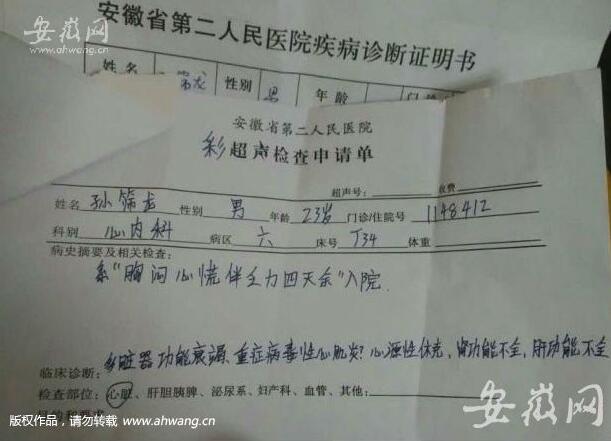 安徽网
www.ahwang.cn
安徽省第二人民医院疾病诊断证明书
姓名 龙 性别 男 年龄
安徽省第二人民医院
彩超声检查申请单
超声号: 收费
姓名 孙 龙 性别 男 年龄 23岁 门诊/住院号 1148412
科别 心内科 病区 六 床号 J34 体重
病史摘要及相关检查:
系"胸闷心慌伴乏力四天余"入院.
多脏器功能衰竭、重症病毒性心肌炎?心源性休克,肾功能不全,肝功能不全
临床诊断:
检查部位:心脏、肝胆胰脾、泌尿系、妇产科、血管、其他:
安徽网
版权作品,请勿转载 www.ahwang.cn